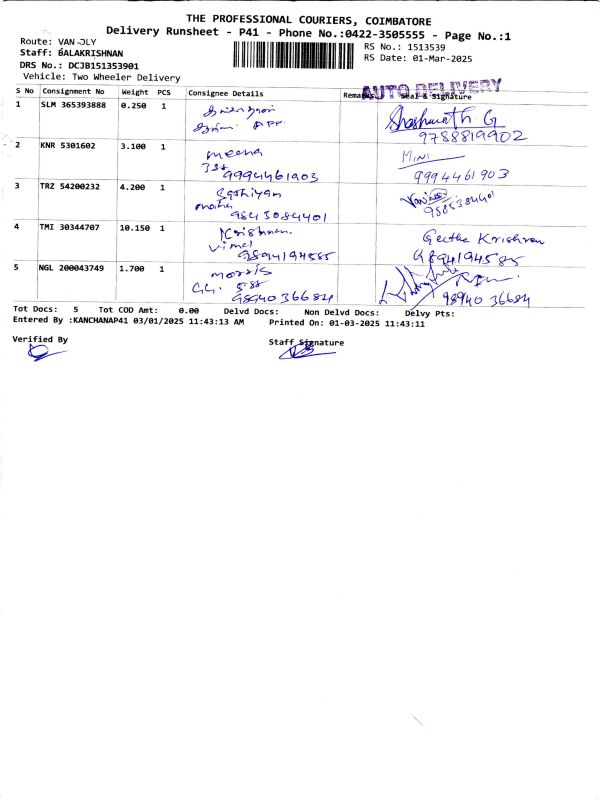 THE PROFESSIONAL COURIERS, COIMBATORE
Delivery Runsheet - P41 - Phone No.:0422-3505555 - Page No.:1
Route: VAN DLY
Staff: BALAKRISHNAN
DRS No.: DCJB151353901
Vehicle: Two Wheeler Delivery
RS No.: 1513539
RS Date: 01-Mar-2025
AUTO DELIVERY
S No Consignment No Weight PCS Consignee Details Remarks Seal & Signature
1 SLM 365393888 0.250 1
Shashwath G
9788819902
2 KNR 5301602 3.100 1 meena MINI
9994461903 9994461903
3 TRZ 54200232 4.200 1
9843084401
4 TMI 30344707 10.150 1 Krishnan. Geetha Krishnan
Vimal
9894194585 9894194585
5 NGL 200043749 1.700 1 morris
98940 36684 98940 36684
Tot Docs: 5 Tot COD Amt: 0.00 Delvd Docs: Non Delvd Docs: Delvy Pts:
Entered By :KANCHANAP41 03/01/2025 11:43:13 AM Printed On: 01-03-2025 11:43:11
Verified By
Staff Signature